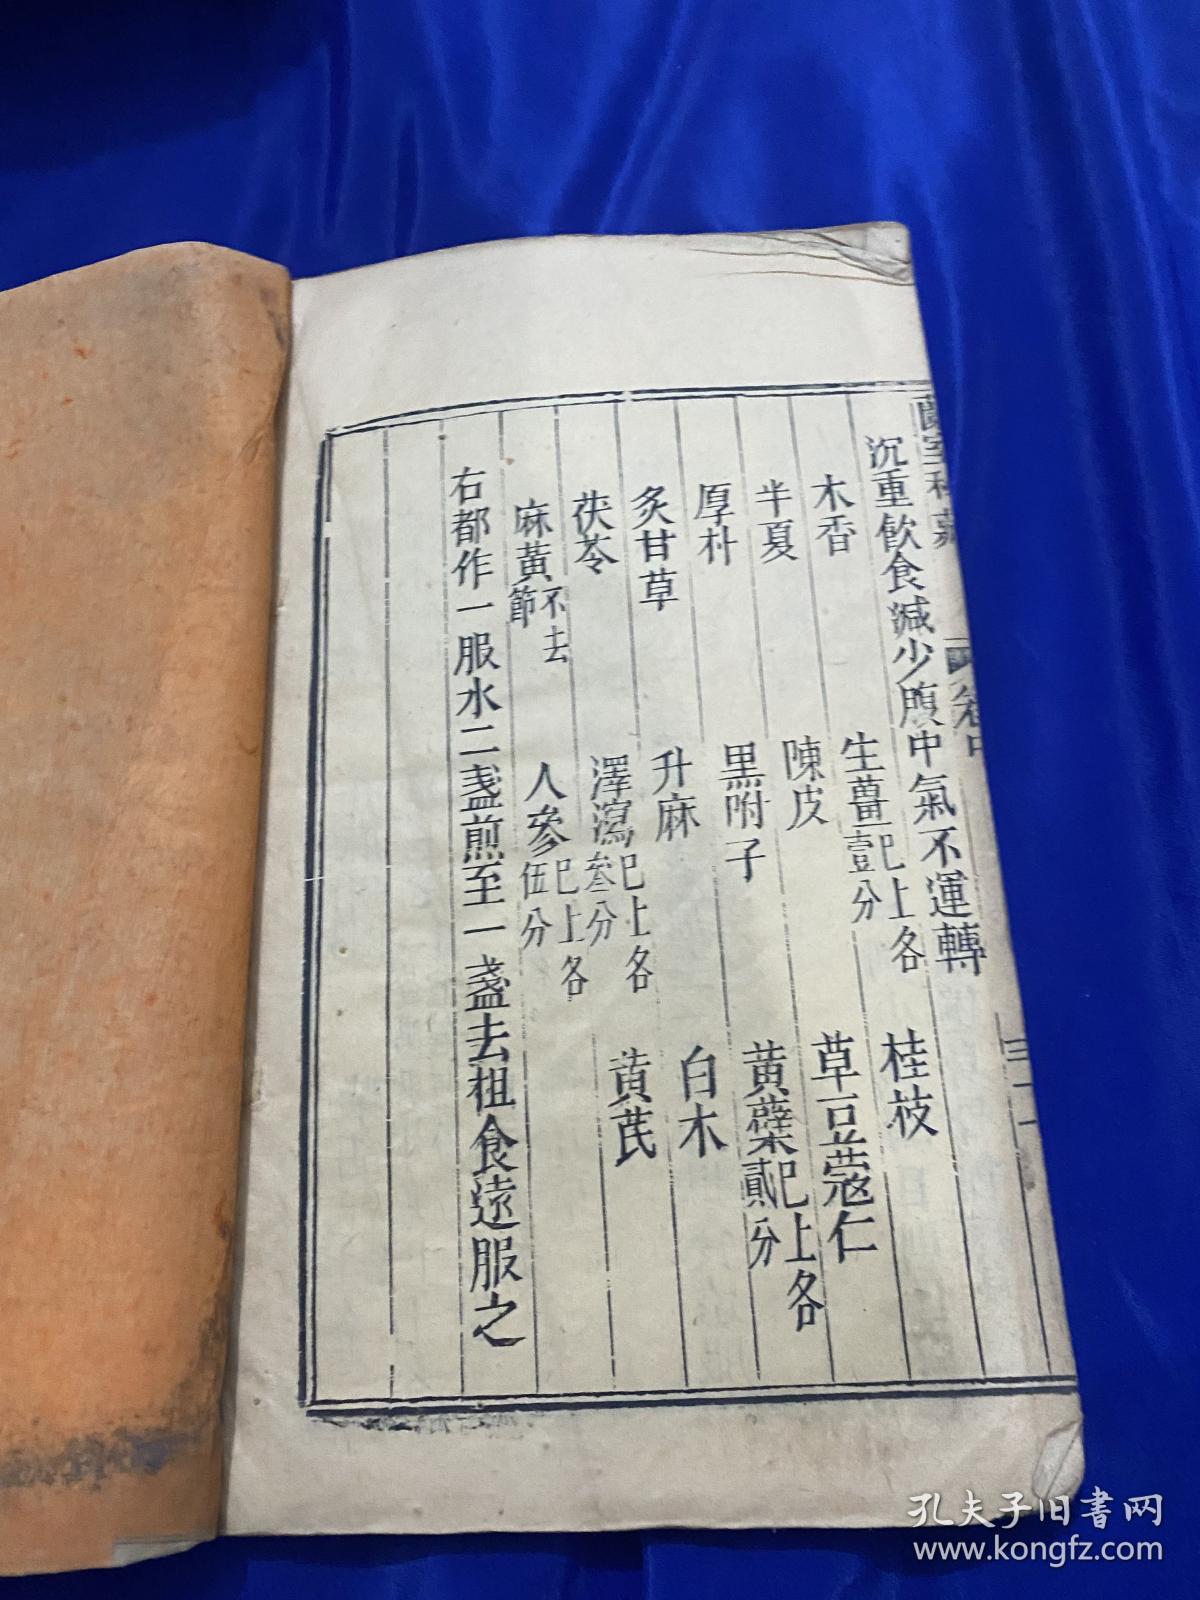 蘭室秘藏 卷中 三十一
沉重飲食減少腹中氣不運轉
木香 生薑已上各壹分 桂枝
半夏 陳皮 草豆蔻仁
厚朴 黑附子 黃蘗已上各貳分
炙甘草 升麻 白木
茯苓 澤瀉已上各叁分 黃芪
麻黃不去節 人參已上各伍分
右都作一服水二盞煎至一盞去柤食遠服之
孔夫子旧书网
www.kongfz.com